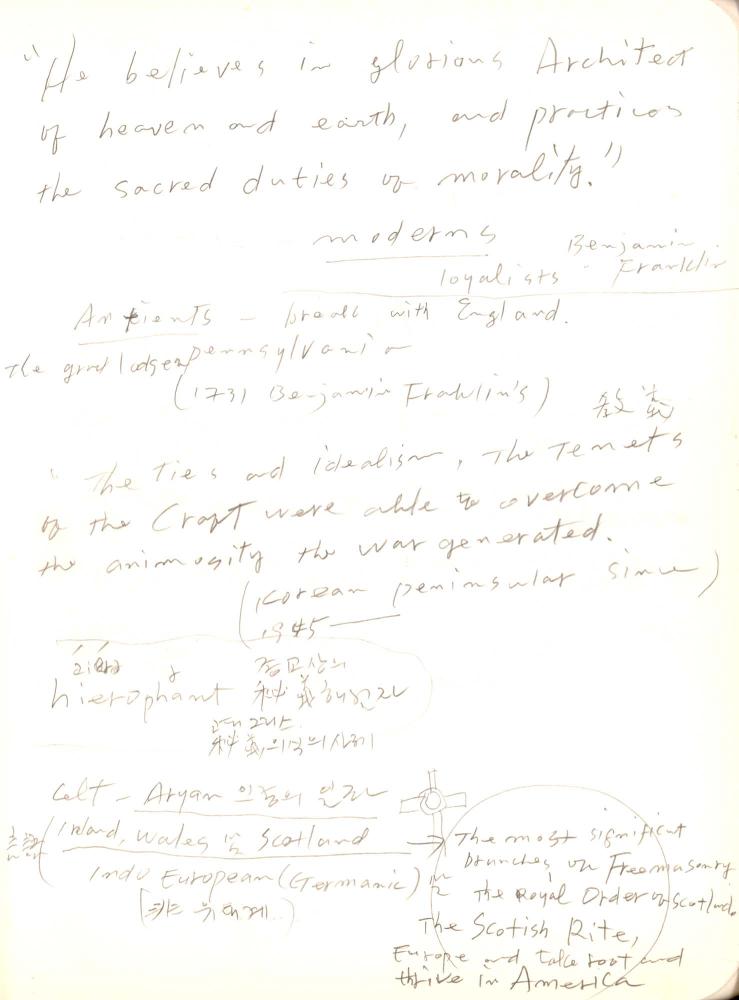 "He believes in glorious Architect
of heaven and earth, and practices
the sacred duties of morality."
moderns
Benjamin
loyalists - Franklin
Antients - break with England.
The grand lodge Pennsylvania
(1731 Benjamin Franklin's)
敎義
"The ties and idealism, The Tenets
of the Craft were able to overcome
the animosity the war generated.
(Korean peninsular since)
1945
종교상의
hierophant 秘義해설자
고대 그리스
秘義의식의 사제
Celt - Aryan 인종의 일파
Irland, Wales 및 Scotland
Indo European (Germanic)
[非 유태계]
The most significant
branches of Freemasonry
The Royal Order of Scotland.
The Scotish Rite,
Europe and take root and
thrive in America